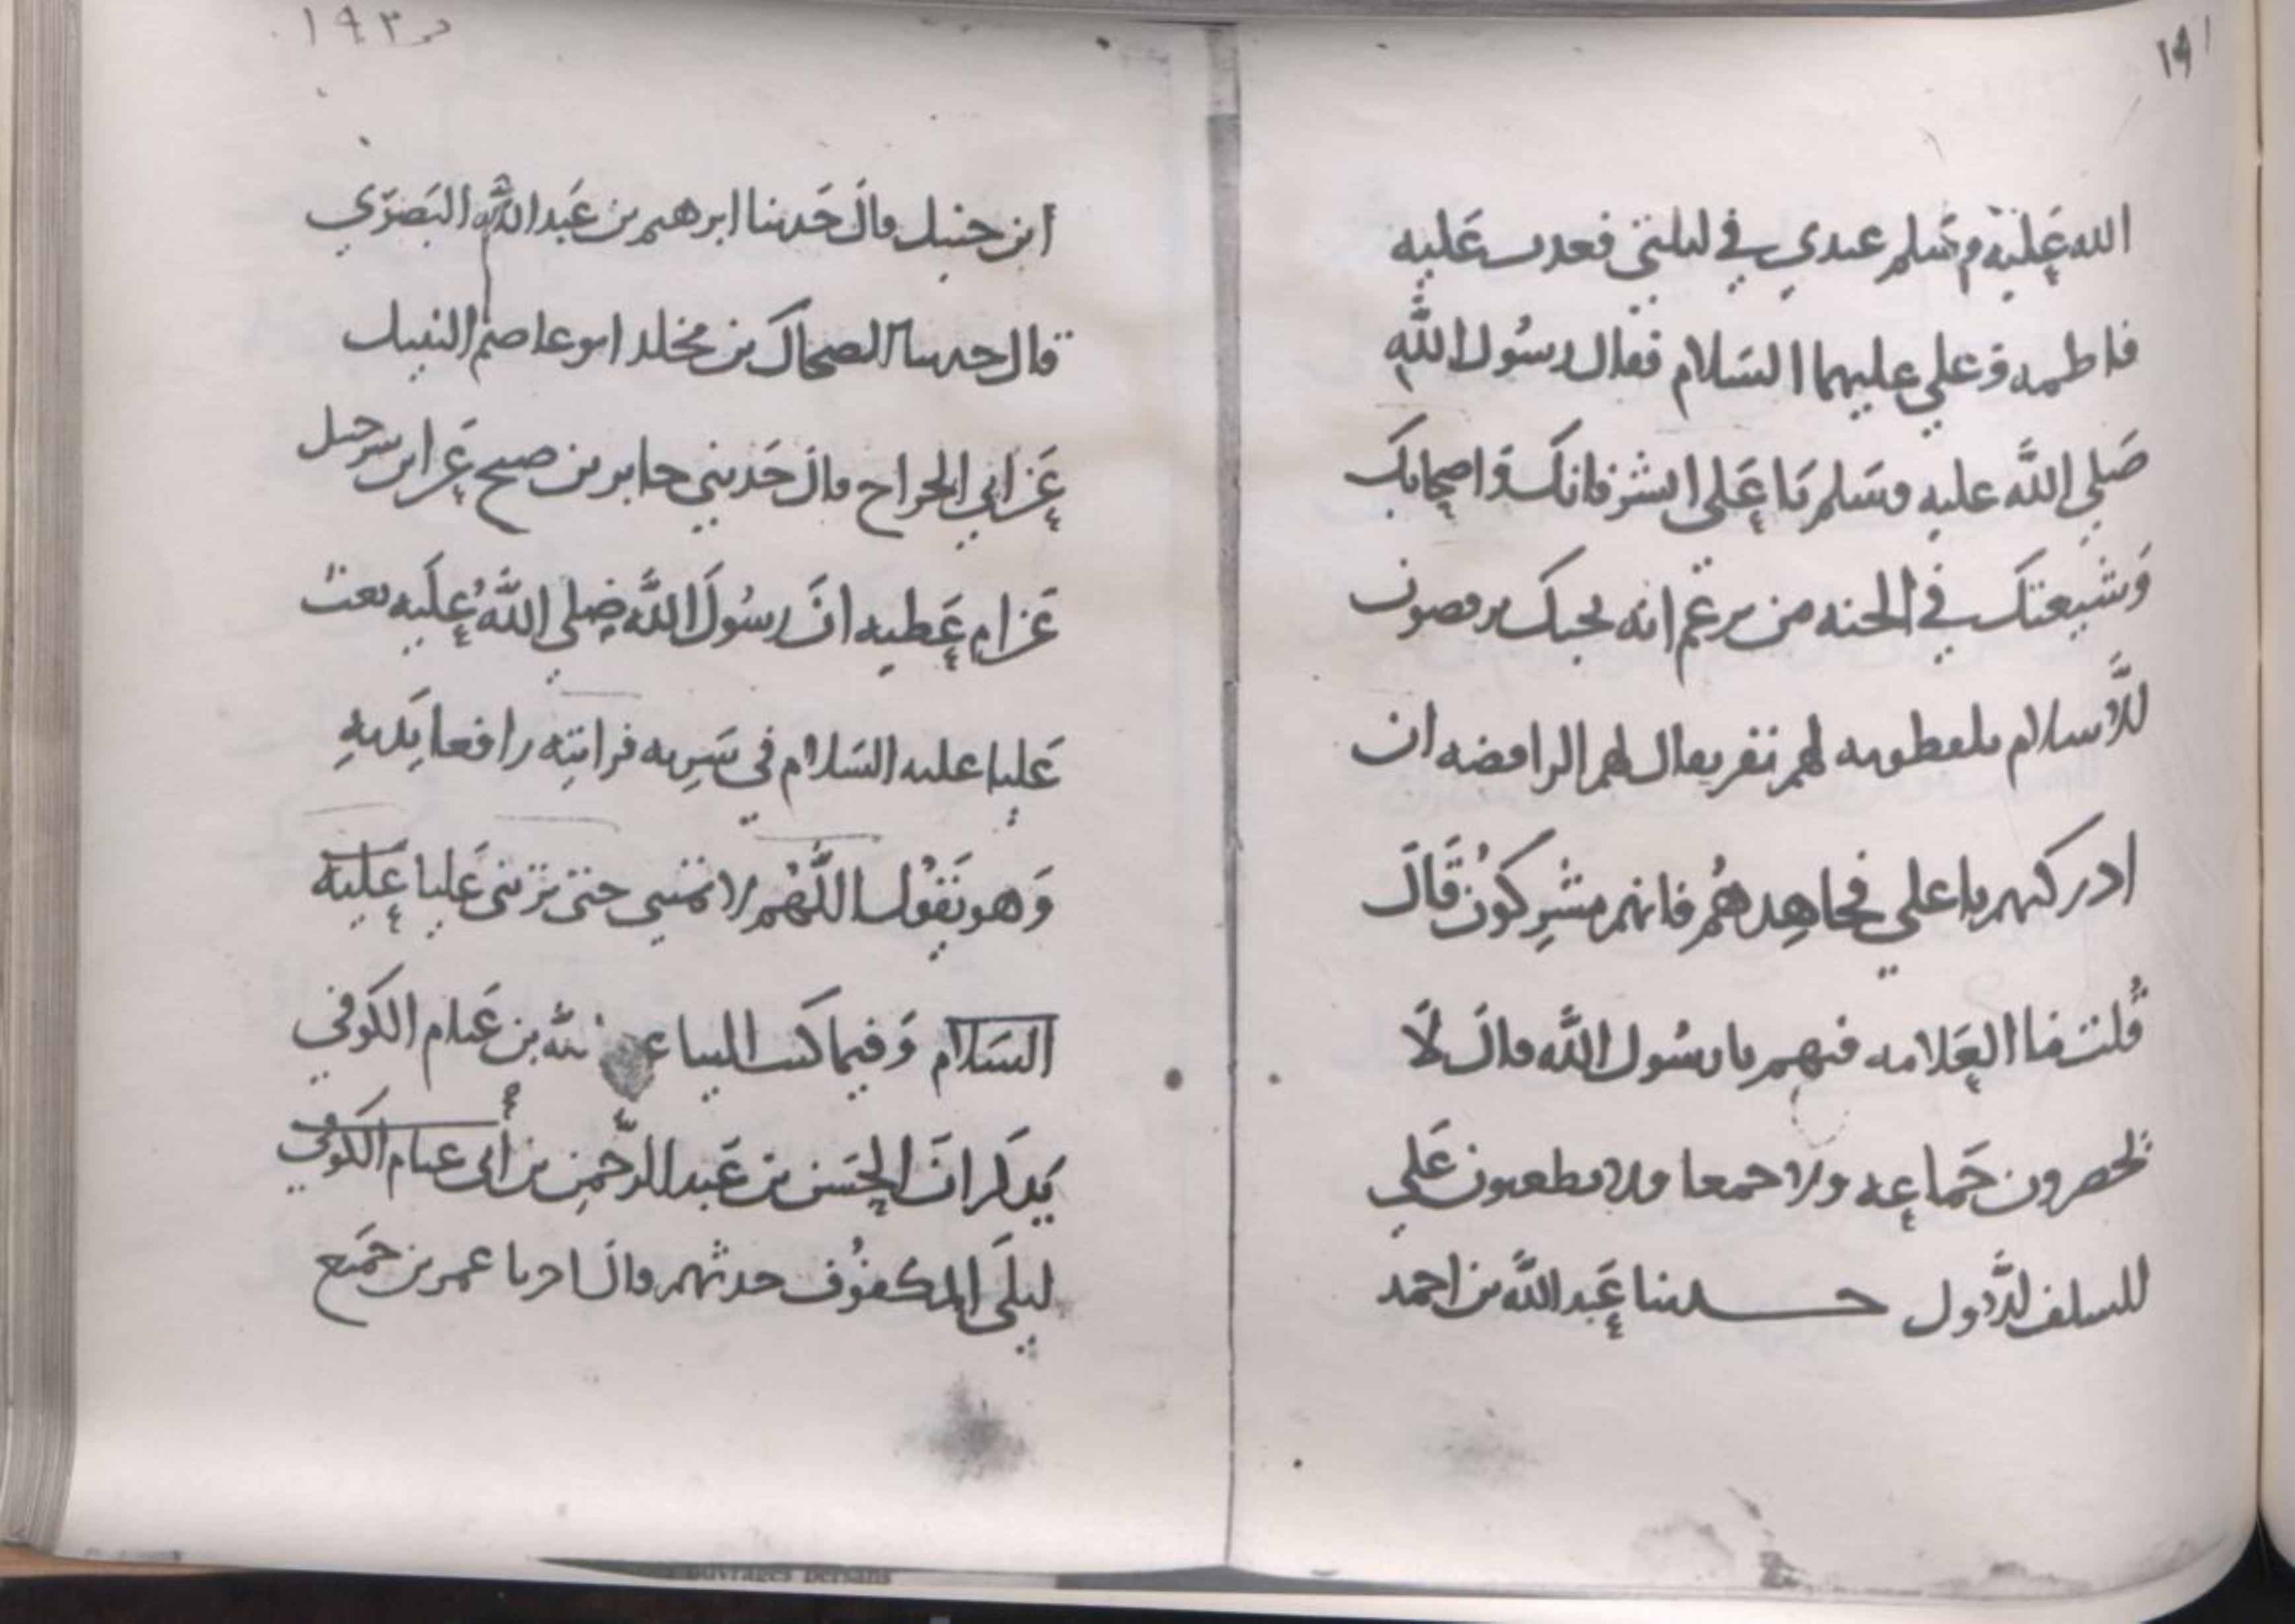 ١٩١
الله عليه وسلم عندي في ليلتي فغدت عليه
فاطمه وعلي عليهما السلام فقال رسول الله
صلى الله عليه وسلم يا علي ابشر فانك واصحابك
وشيعتك في الجنه ممن يزعم انه يحبك يرفضون
الاسلام يلفظونه لهم نفر يقال لهم الرافضه ان
ادركتهم يا علي فجاهدهم فانهم مشركون قال
قلت ما العلامه فيهم يا رسول الله قال لا
يحضرون جماعه ولا جمعا ولا يطعنون على
للسلف الاول حدثنا عبد الله بن احمد
١٩٣
ابن حنبل قال حدثنا ابرهيم بن عبد الله البصري
قال حدثنا الضحاك بن مخلد ابو عاصم النبيل
عن ابي الجراح قال حدثني جابر بن صبح عن ابن شرحبيل
عن ام عطيه ان رسول الله صلى الله عليه بعث
عليا عليه السلام في سريه فرايته رافعا يديه
وهو يقول اللهم لا تمتني حتى تريني عليا عليه
السلام وفيما كتب الينا الله بن غنام الكوفي
يذكر ان الحسن بن عبد الرحمن بن أبي الكوفي
ليلى المكفوف حدثهم قال عمر بن جميع
Ouvrages Persans